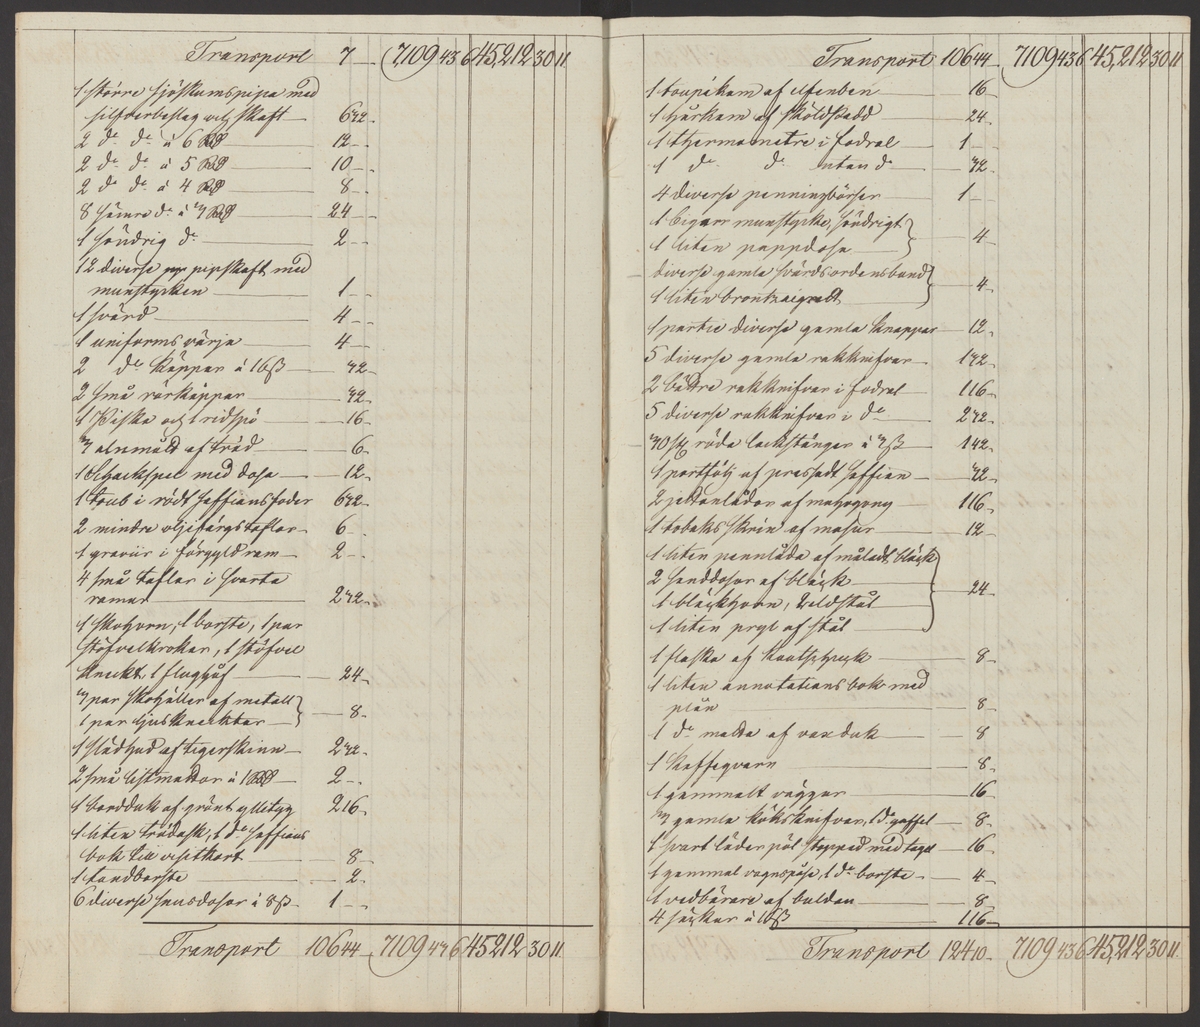 Transport 7 — 7109 43 6 45,212 30 11
1 större sjöskumspipa med
silfverbeslag och skaft — 6 32
2 do do à 6 Rd — 12
2 do do à 5 Rd — 10
2 do do à 4 Rd — 8
8 sämre do à 3 Rd — 24
1 söndrig do — 2
12 diverse pipskaft med
munstycken — 1
1 svärd — 4
1 uniformsvärja — 4
2 do käppar à 16 ß — 32
2 små rörkäppar — 32
1 Piska och 1 ridspö — 16
3 alnmått af träd — 6
1 Schackspel med dosa — 12
1 tub i rödt saffiansfoder 6 32
2 mindre oljefärgstaflor — 6
1 gravür i förgyld ram — 2
4 små taflor i svarta
ramar — 2 32
1 skohorn, 1 borste, 1 par
stöfvelkrokar, 1 stöfvel
knekt, 1 — 24
3 par skohällor af metall
1 par ljusknektar — 8
1 slädhud af tigerskinn — 2 32
2 små listmattor à 1 Rd — 2
1 bordduk af grönt ylletyg 2 16
1 liten trädask, 1 do saffians
bok till visitkort — 8
1 tandborste — 2
6 diverse snusdosor à 8 ß — 1
Transport 106 44 7109 43 6 45212 30 11
Transport 106 44 7109 43 6 45,212 30 11
1 toupékam af elfenben — 16
1 hårkam af sköldpadd — 24
1 thermometre i fodral — 1
1 do do utan do — 32
4 diverse penningbörser — 1
1 cigarr munstycke, söndrigt
1 liten pappdosa — 4
diverse gamla svärdsordensband
1 liten — 4
1 partie diverse gamla knappar — 12
5 diverse gamla rakknifvar — 1 32
2 bättre rakknifvar i fodral — 1 16
5 diverse rakknifvar i do — 2 32
30 st röda lackstänger à 3 ß — 1 42
1 portfölj af pressadt saffian — 32
2 lådor af mahogony — 1 16
1 tobaks skrin af masur — 12
1 liten pennlåda af måladt bläck
2 sanddosor af bläck
1 bläckhorn, 1 eldstål
1 liten pryl af stål — 24
1 flaska af kautschuck — 8
1 liten annotationsbok med
plån — 8
1 do matta af vaxduk — 8
1 kaffeqvarn — 8
1 gammalt — 16
3 gamla köksknifvar, 1 do gaffel — 8
1 svart läderpöl stoppad med tagel 16
1 gammal vagnspåse, 1 do borste — 4
1 vedbärare af buldan — 8
4 säckar à 16 ß — 1 16
Transport 124 10 7109 43 6 45,212 30 11